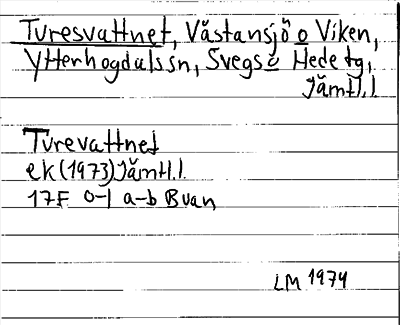 Turesvattnet, Västansjö o Viken,
Ytterhogdalssn, Svegs o Hede tg,
Jämtl.l.
Turevattnet
ek (1973) Jämtl.l.
17F 0-1 a-b Buan
LM 1974